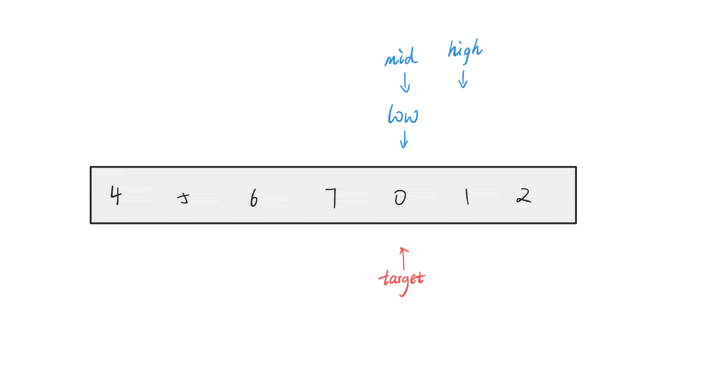 mid high
low
4 5 6 7 0 1 2
target